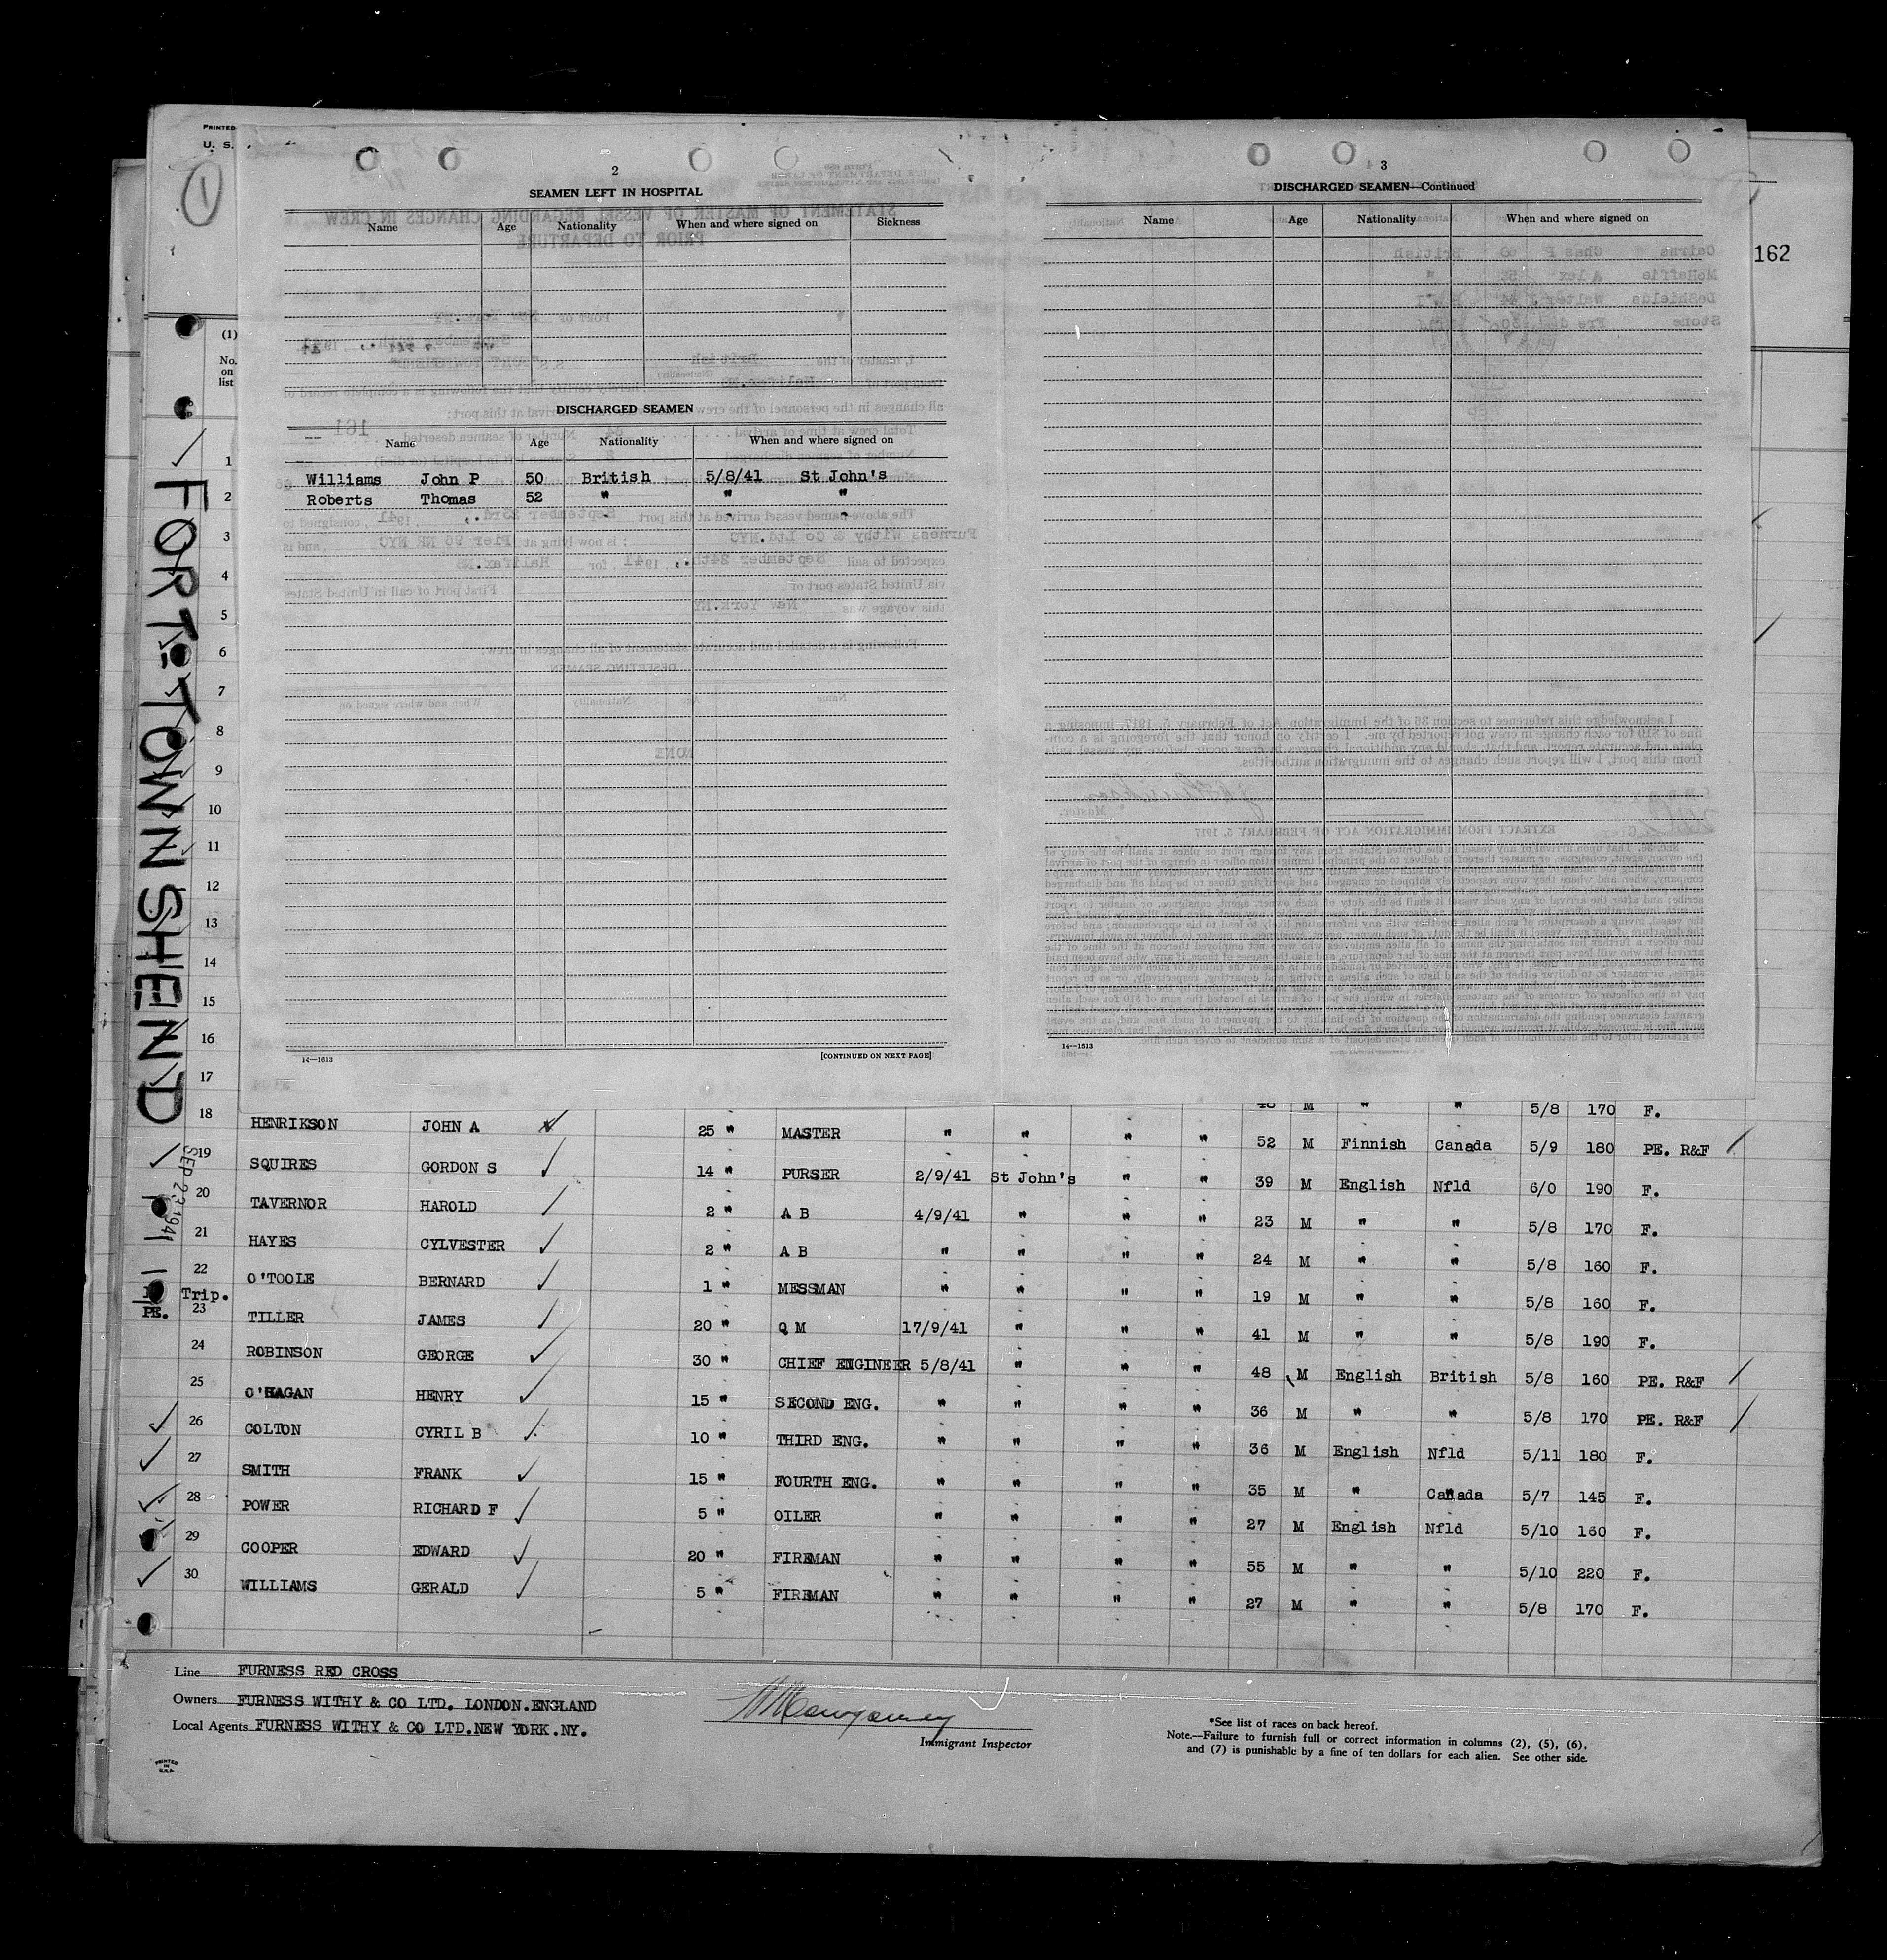 PRINTED
U. S.
1
2
SEAMEN LEFT IN HOSPITAL
Name Age Nationality When and where signed on Sickness
DISCHARGED SEAMEN
Name Age Nationality When and where signed on
Williams John P 50 British 5/8/41 St John's
Roberts Thomas 52 " " "
14—1613
[CONTINUED ON NEXT PAGE]
3
DISCHARGED SEAMEN—Continued
Name Age Nationality When and where signed on
14—1613
162
(1)
No. on list
1
2
3
4
5
6
7
8
9
10
11
12
13
14
15
16
17
FORT TOWNSHEND
SEP 23 1941
Trip.
PE.
18 " " 5/8 170 F.
HENRIKSON JOHN A 25 " MASTER " " " " 52 M Finnish Canada 5/9 180 PE. R&F
19 SQUIRES GORDON S 14 " PURSER 2/9/41 St John's " " 39 M English Nfld 6/0 190 F.
20 TAVERNOR HAROLD 2 " A B 4/9/41 " " " 23 M " " 5/8 170 F.
21 HAYES CYLVESTER 2 " A B " " " " 24 M " " 5/8 160 F.
22 O'TOOLE BERNARD 1 " MESSMAN " " " " 19 M " " 5/8 160 F.
23 TILLER JAMES 20 " Q M 17/9/41 " " " 41 M " " 5/8 190 F.
24 ROBINSON GEORGE 30 " CHIEF ENGINEER 5/8/41 " " " 48 M English British 5/8 160 PE. R&F
25 O'HAGAN HENRY 15 " SECOND ENG. " " " " 36 M " " 5/8 170 PE. R&F
26 COLTON CYRIL B 10 " THIRD ENG. " " " " 36 M English Nfld 5/11 180 F.
27 SMITH FRANK 15 " FOURTH ENG. " " " " 35 M " Canada 5/7 145 F.
28 POWER RICHARD F 5 " OILER " " " " 27 M English Nfld 5/10 160 F.
29 COOPER EDWARD 20 " FIREMAN " " " " 55 M " " 5/10 220 F.
30 WILLIAMS GERALD 5 " FIREMAN " " " " 27 M " " 5/8 170 F.
Line FURNESS RED CROSS
Owners FURNESS WITHY & CO LTD. LONDON.ENGLAND
Local Agents FURNESS WITHY & CO LTD.NEW YORK.NY.
Immigrant Inspector
*See list of races on back hereof.
Note.—Failure to furnish full or correct information in columns (2), (5), (6),
and (7) is punishable by a fine of ten dollars for each alien. See other side.
PRINTED IN U.S.A.